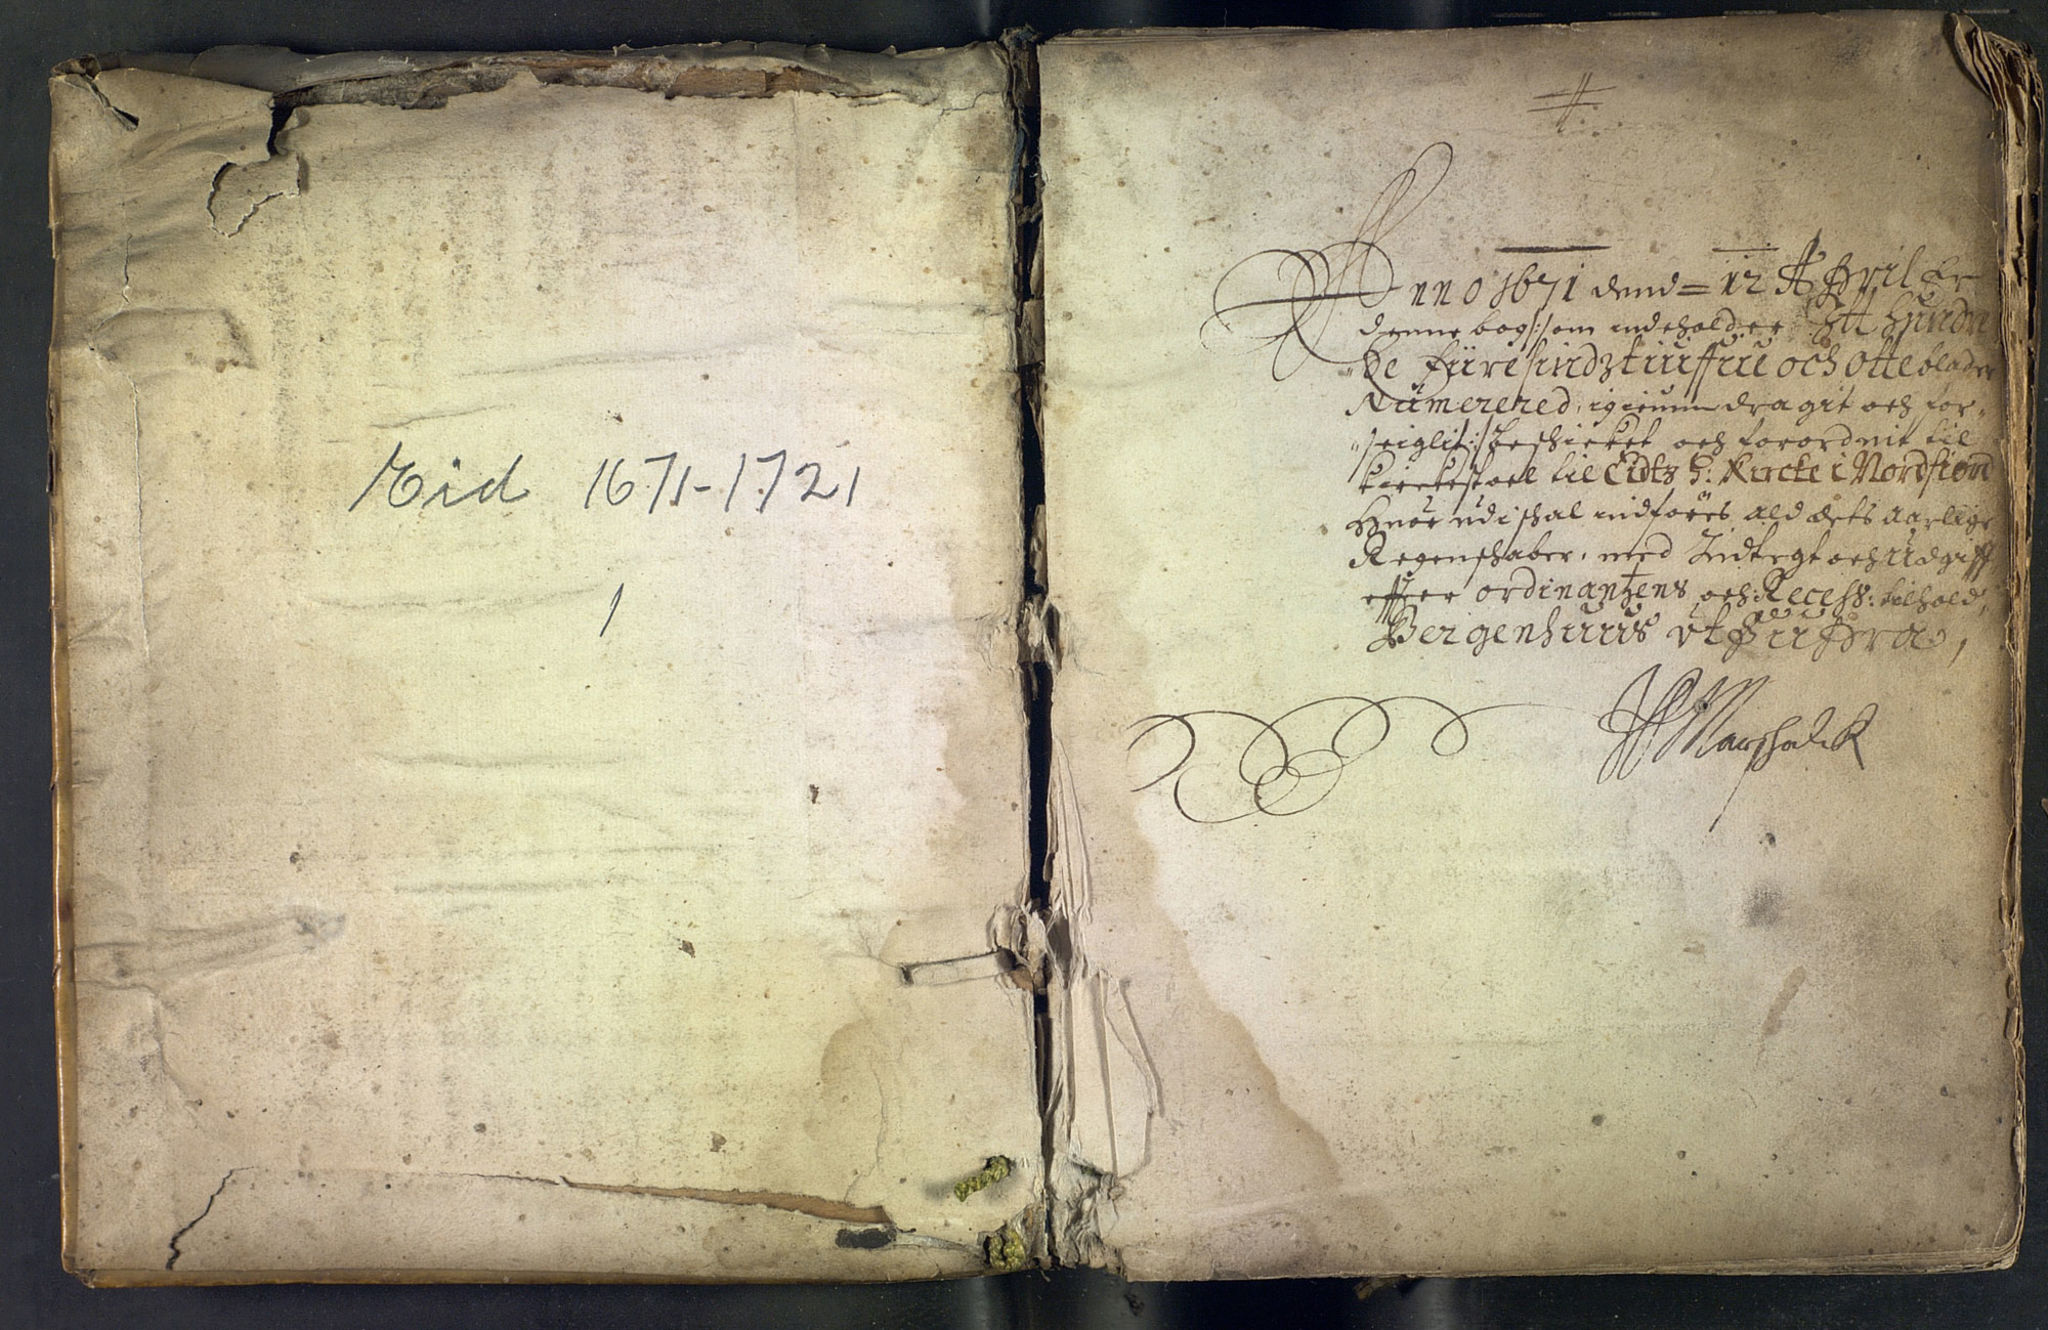 Eid 1671-1721
1
Anno 1671 dend = 12 April Er
denne bog /: som indeholder Ett Hundre
de fiiresindztiuffue och otte blade
Nümmerered, igiennemdragit och for-
seiglit :/ beschicket och forordnit til
Kirkestoel til Eidtz H: Kircke i Nordfiord
Huor udi schal indføris ald dets Aarlige
Regenschaber, med Indtegt och Udgifft
effter ordinantzens och Recess: tilhold,
Bergenhuus ut supra,
Marschalck